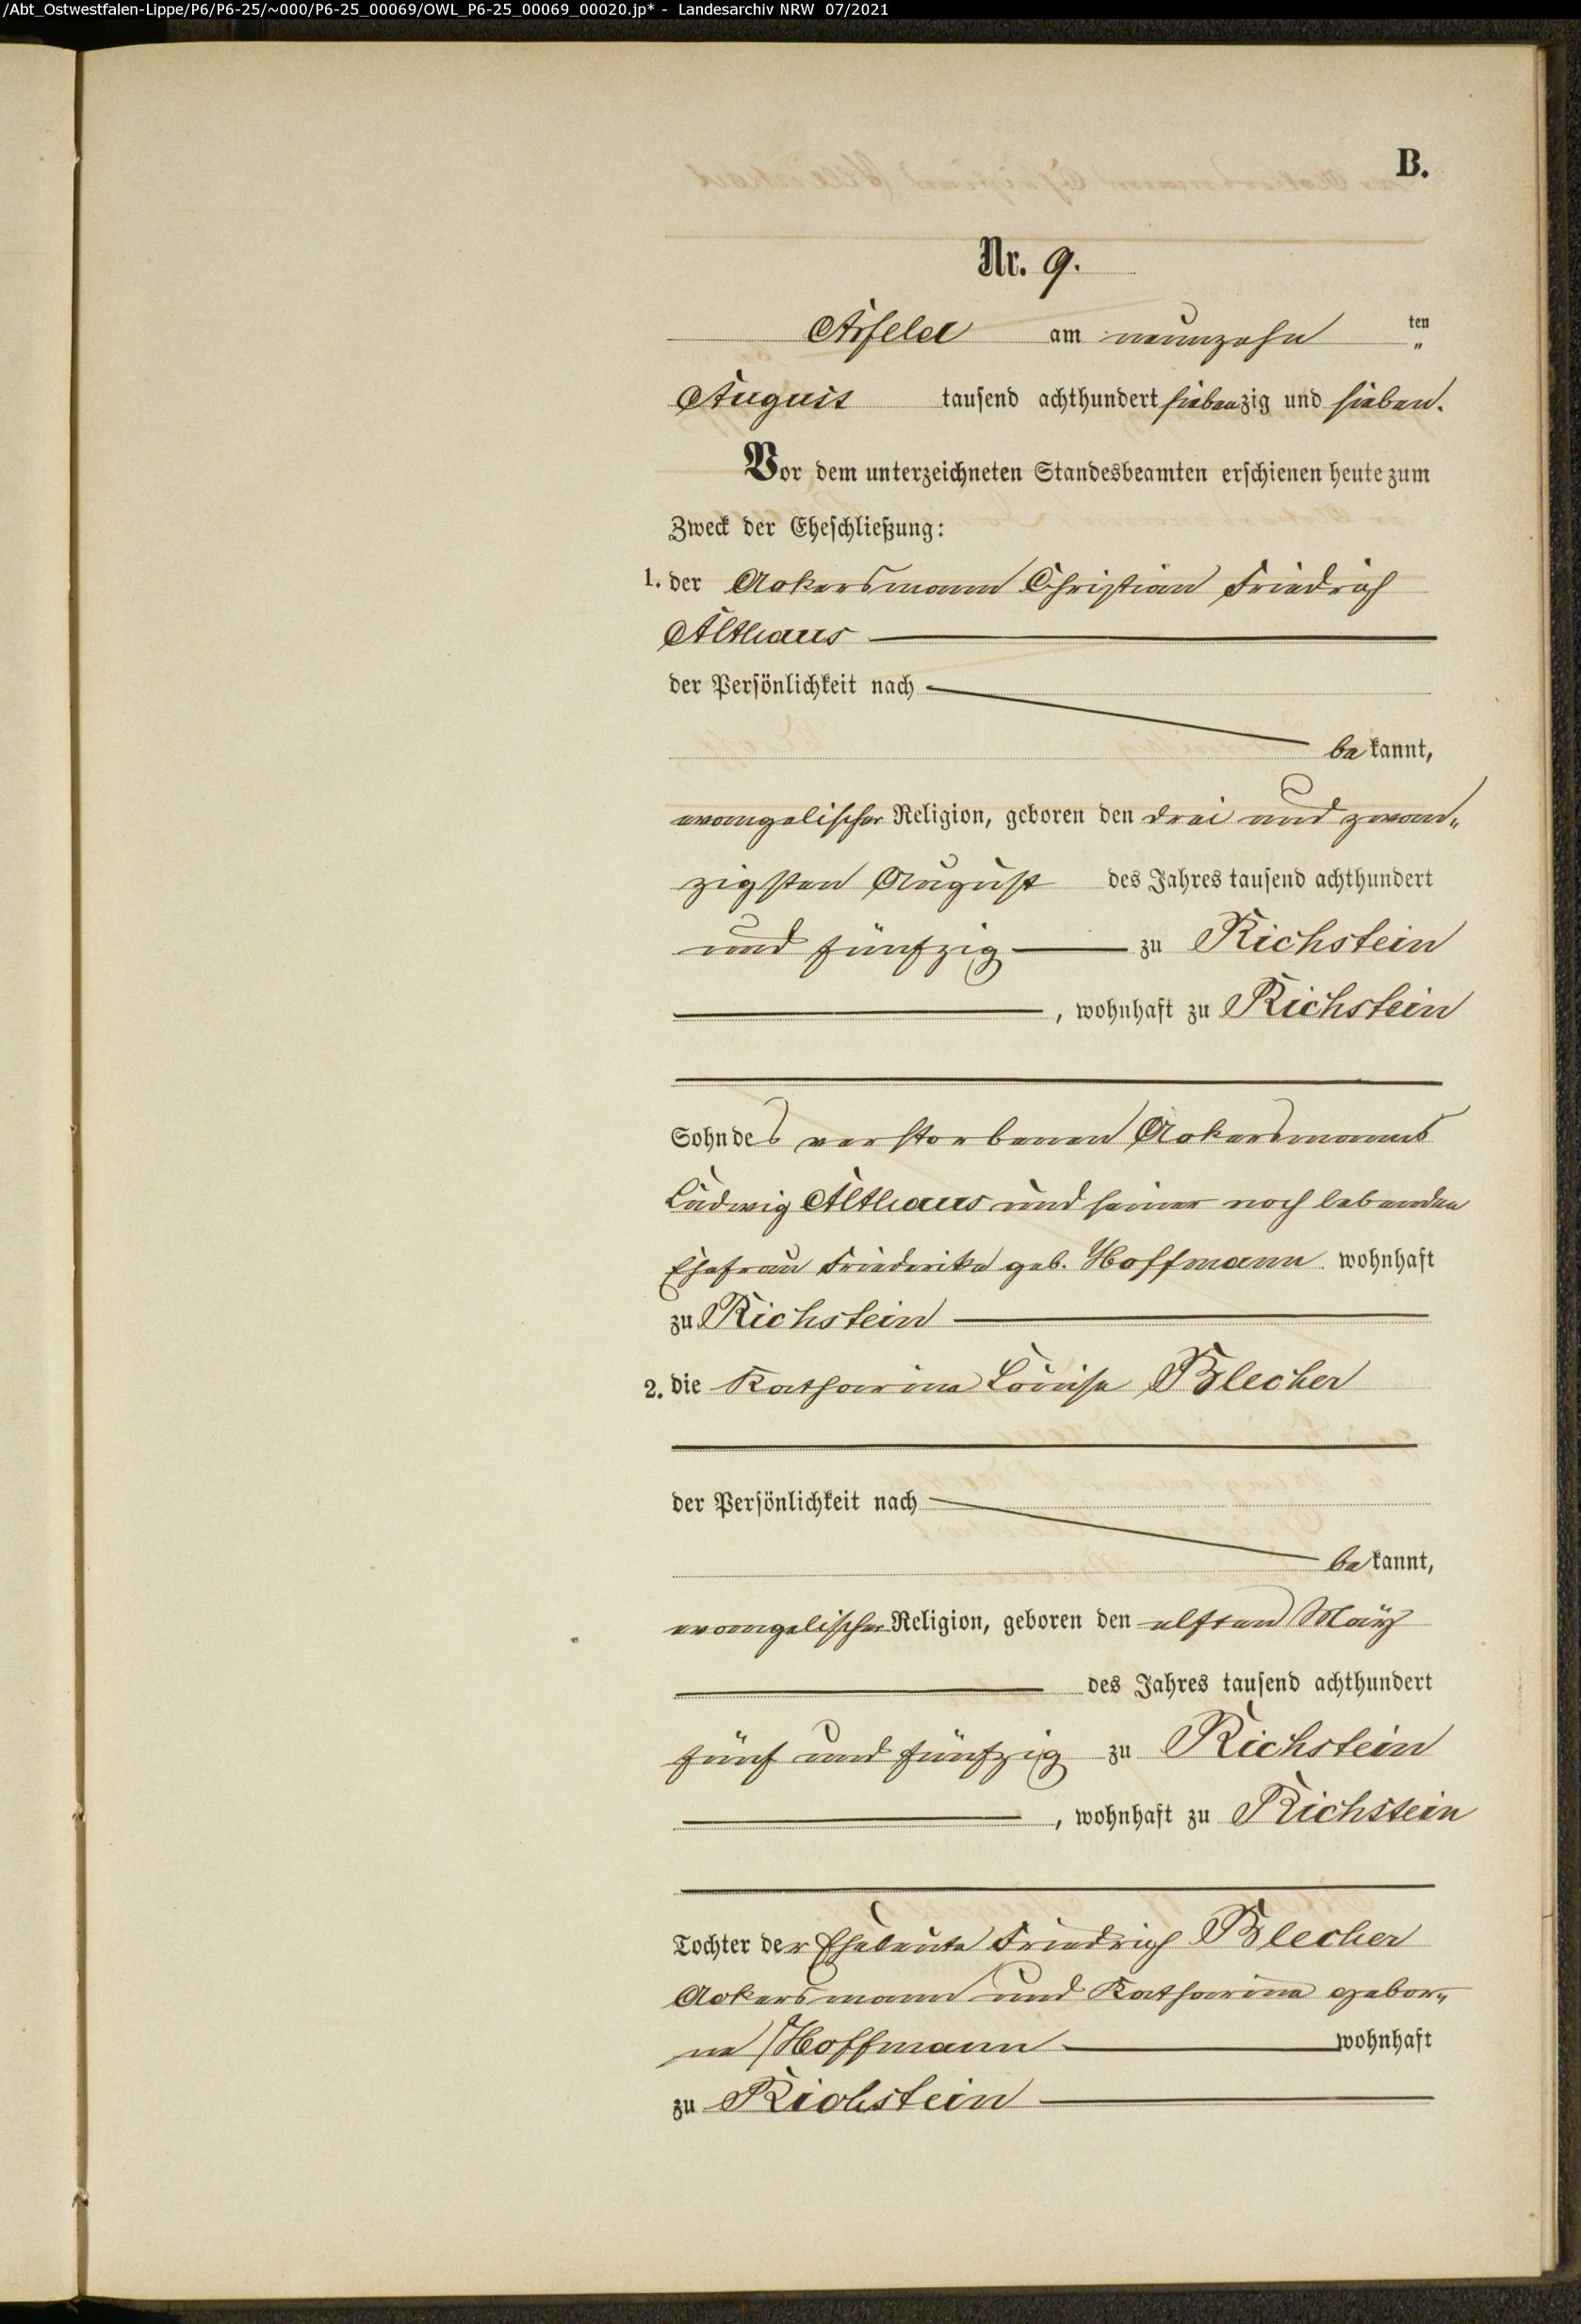 /Abt_Ostwestfalen-Lippe/P6/P6-25/~000/P6-25_00069/OWL_P6-25_00069_00020.jp* - Landesarchiv NRW 07/2021
B.
Nr. 9.
Arfeld am neunzehn ten
August tausend achthundert siebenzig und sieben.
Vor dem unterzeichneten Standesbeamten erschienen heute zum
Zweck der Eheschließung:
1. der Ackersmann Christian Friedrich
Althaus
der Persönlichkeit nach
bekannt,
evangelischer Religion, geboren den drei und zwan„
zigsten August des Jahres tausend achthundert
und fünfzig zu Richstein
, wohnhaft zu Richstein
Sohn des verstorbenen Ackersmanns
Ludwig Althaus und seiner noch lebenden
Ehefrau Friederike geb. Hoffmann wohnhaft
zu Richstein
2. die Katharina Louise Blecher
der Persönlichkeit nach
bekannt,
evangelischer Religion, geboren den elften März
des Jahres tausend achthundert
fünf und fünfzig zu Richstein
, wohnhaft zu Richstein
Tochter der Eheleute Friedrich Blecher
Ackersmann und Katharina gebor„
ne Hoffmann wohnhaft
zu Richstein